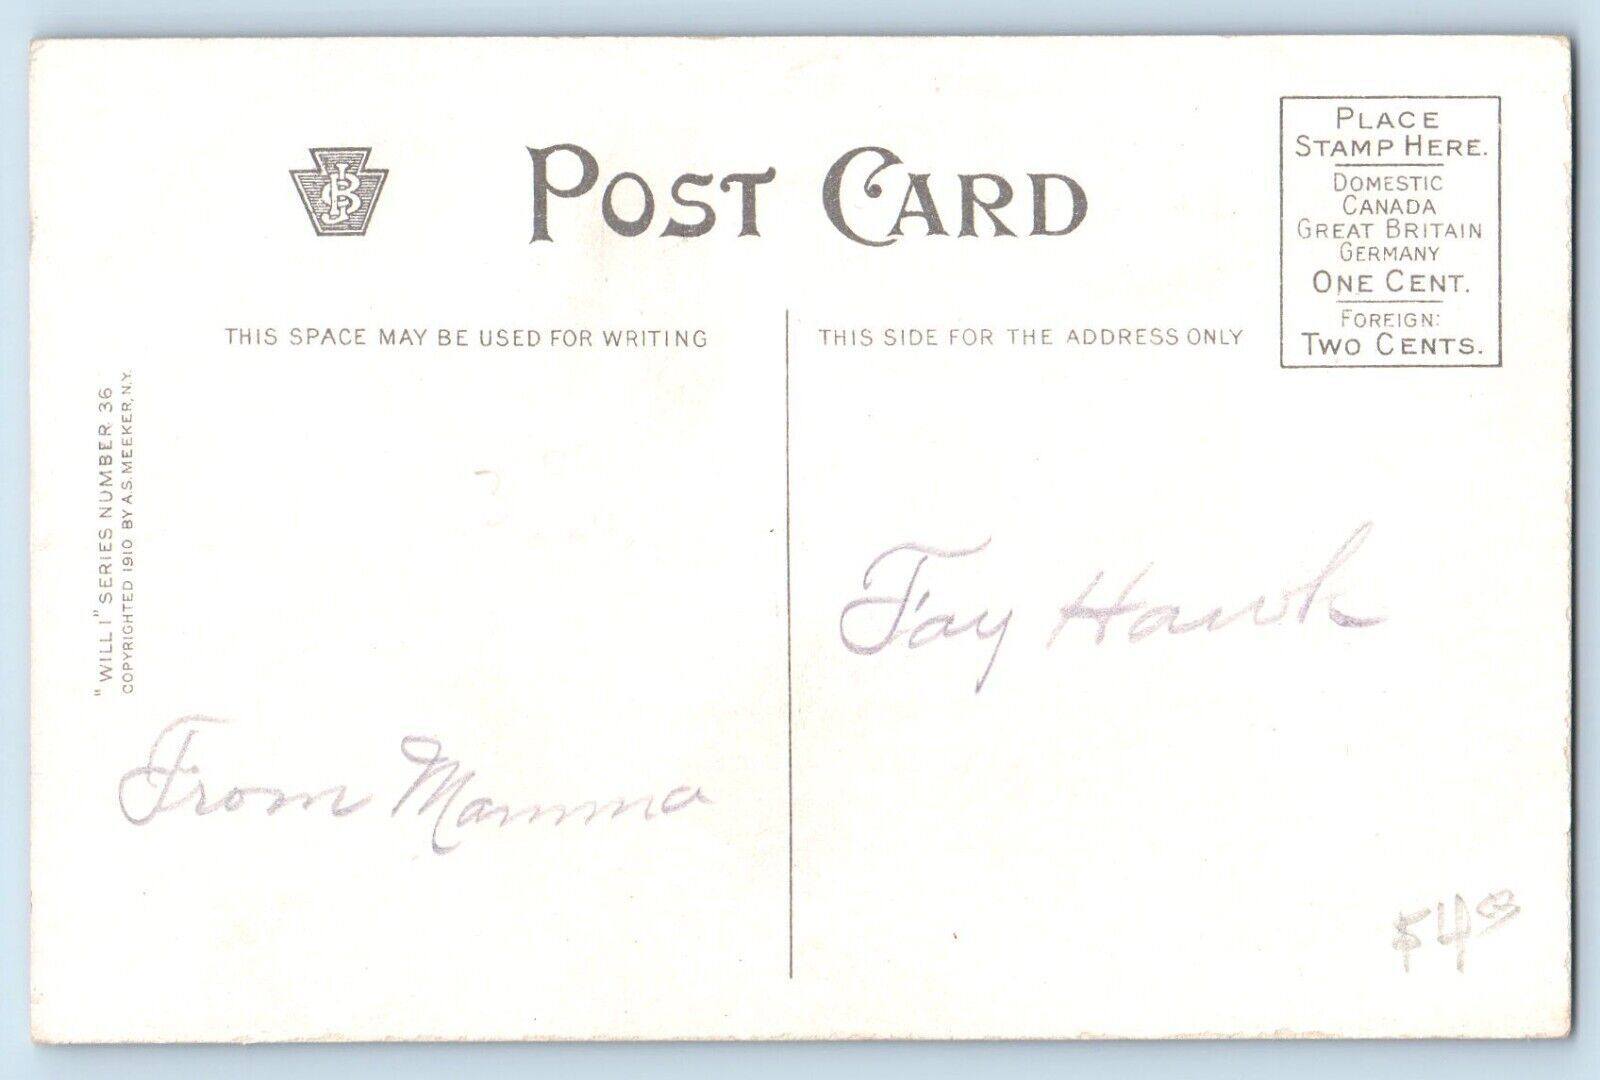 POST CARD
PLACE
STAMP HERE.
DOMESTIC
CANADA
GREAT BRITAIN
GERMANY
ONE CENT.
FOREIGN:
TWO CENTS.
THIS SPACE MAY BE USED FOR WRITING
THIS SIDE FOR THE ADDRESS ONLY
"WILL I" SERIES NUMBER 36
COPYRIGHTED 1910 BY A.S. MEEKER, N.Y.
Fay Hawk
From Mamma
$4